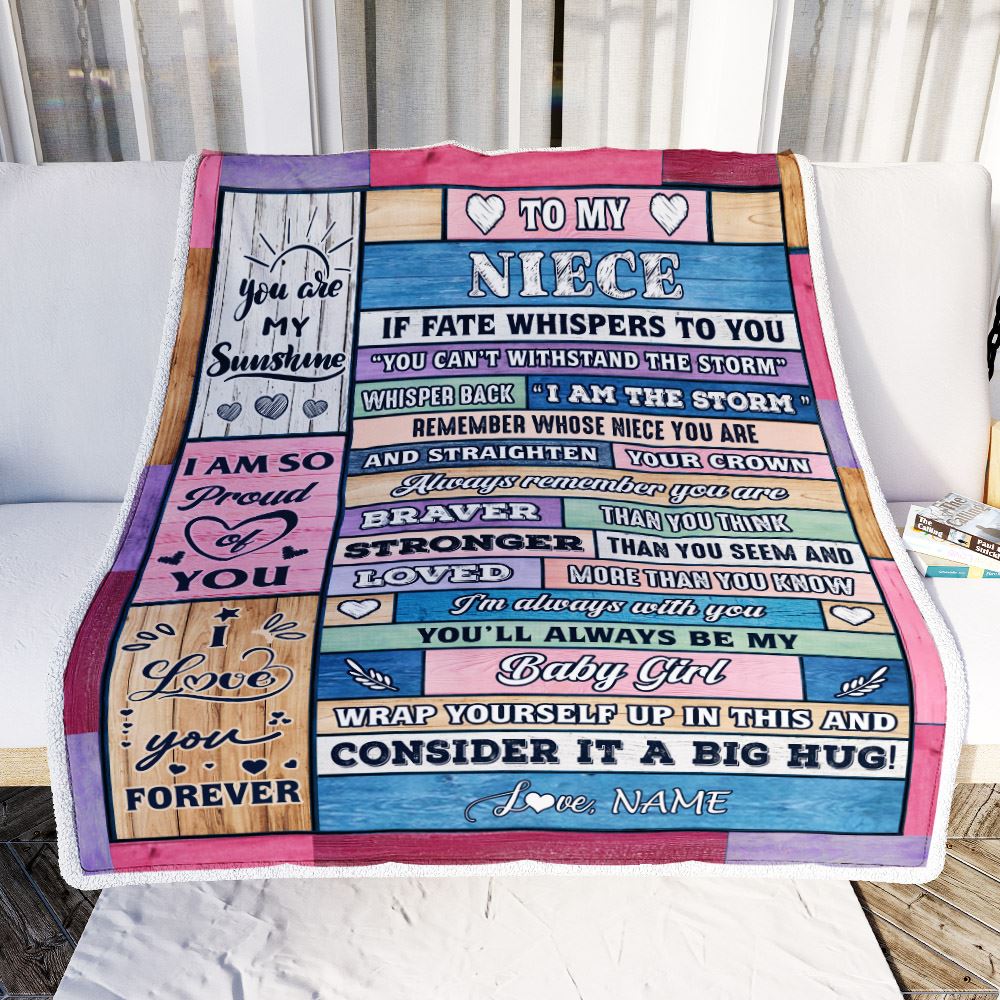 You are
MY
Sunshine
I AM SO
Proud
of
YOU
I
Love
you
FOREVER
TO MY
NIECE
IF FATE WHISPERS TO YOU
“YOU CAN'T WITHSTAND THE STORM”
WHISPER BACK “I AM THE STORM”
REMEMBER WHOSE NIECE YOU ARE
AND STRAIGHTEN YOUR CROWN
Always remember you are
BRAVER THAN YOU THINK
STRONGER THAN YOU SEEM AND
LOVED MORE THAN YOU KNOW
I'm always with you
YOU'LL ALWAYS BE MY
Baby Girl
WRAP YOURSELF UP IN THIS AND
CONSIDER IT A BIG HUG!
Love, NAME
The
Calling
Paul